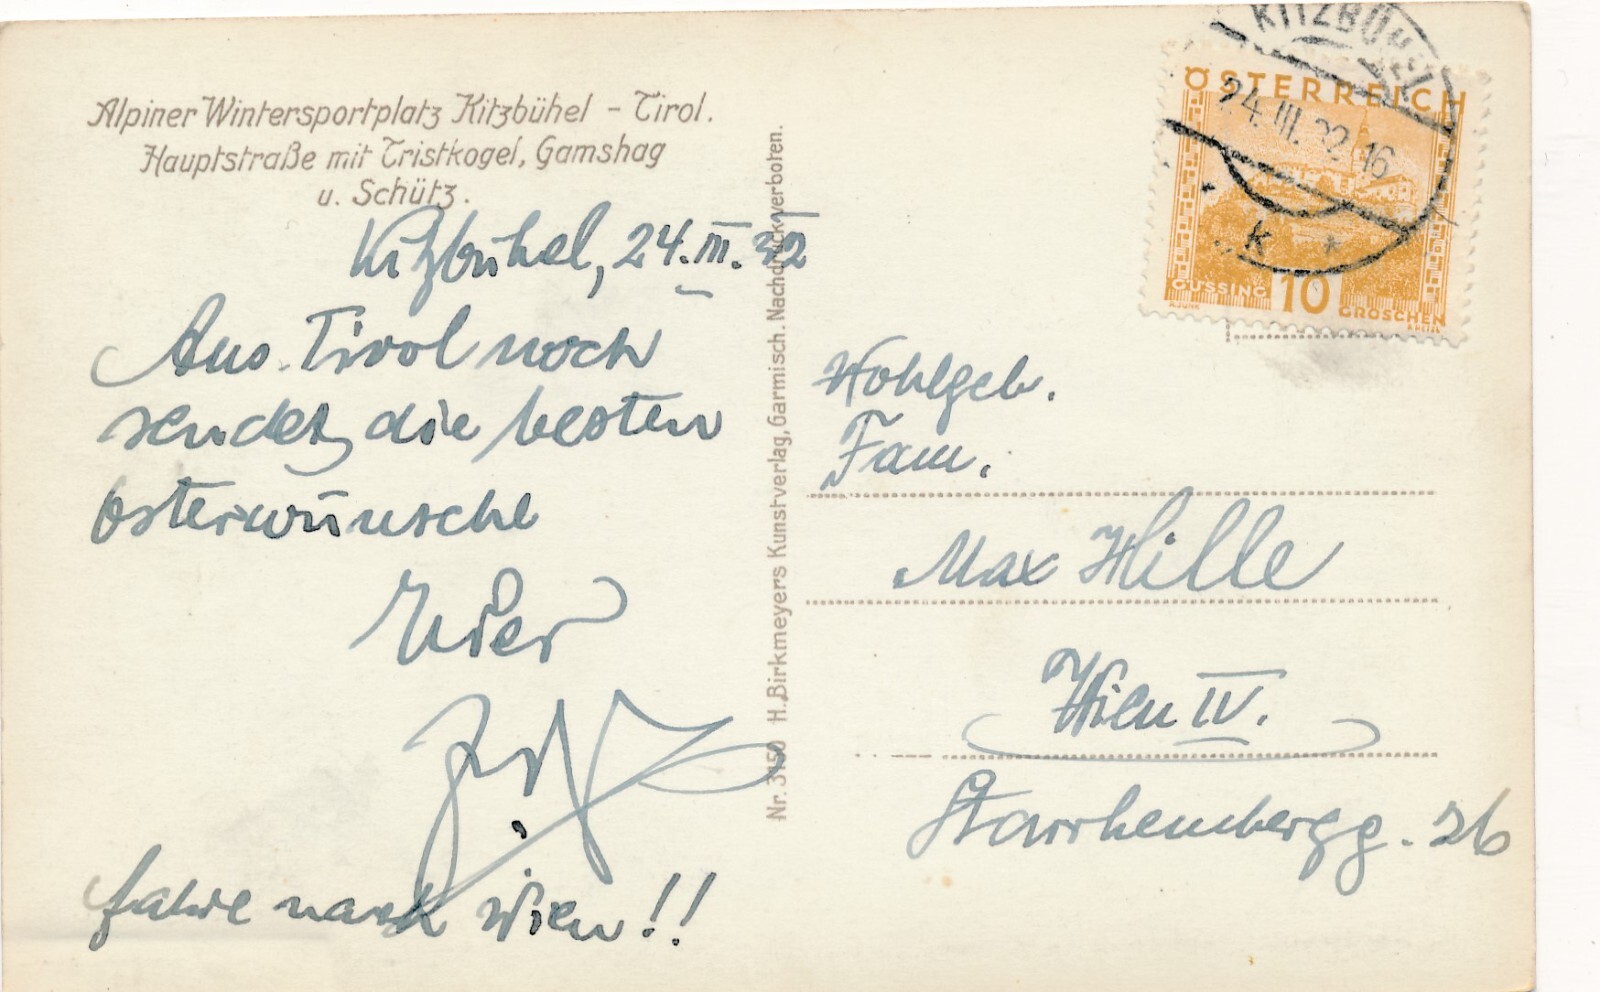 Alpiner Wintersportplatz Kitzbühel - Tirol.
Hauptstraße mit Tristkogel, Gamshag
u. Schütz.
Kitzbühel, 24.III.32
Aus Tirol noch
sendet die besten
Osterwünsche
Euer
fahre nach Wien!!
Nr. 3150 H. Birkmeyers Kunstverlag, Garmisch. Nachdruck verboten.
KITZBÜHEL
24.III.32 16
K *
ÖSTERREICH
GÜSSING 10 GROSCHEN
Wohlgeb.
Fam.
Max Hille
Wien IV.
Starrhembergg. 26